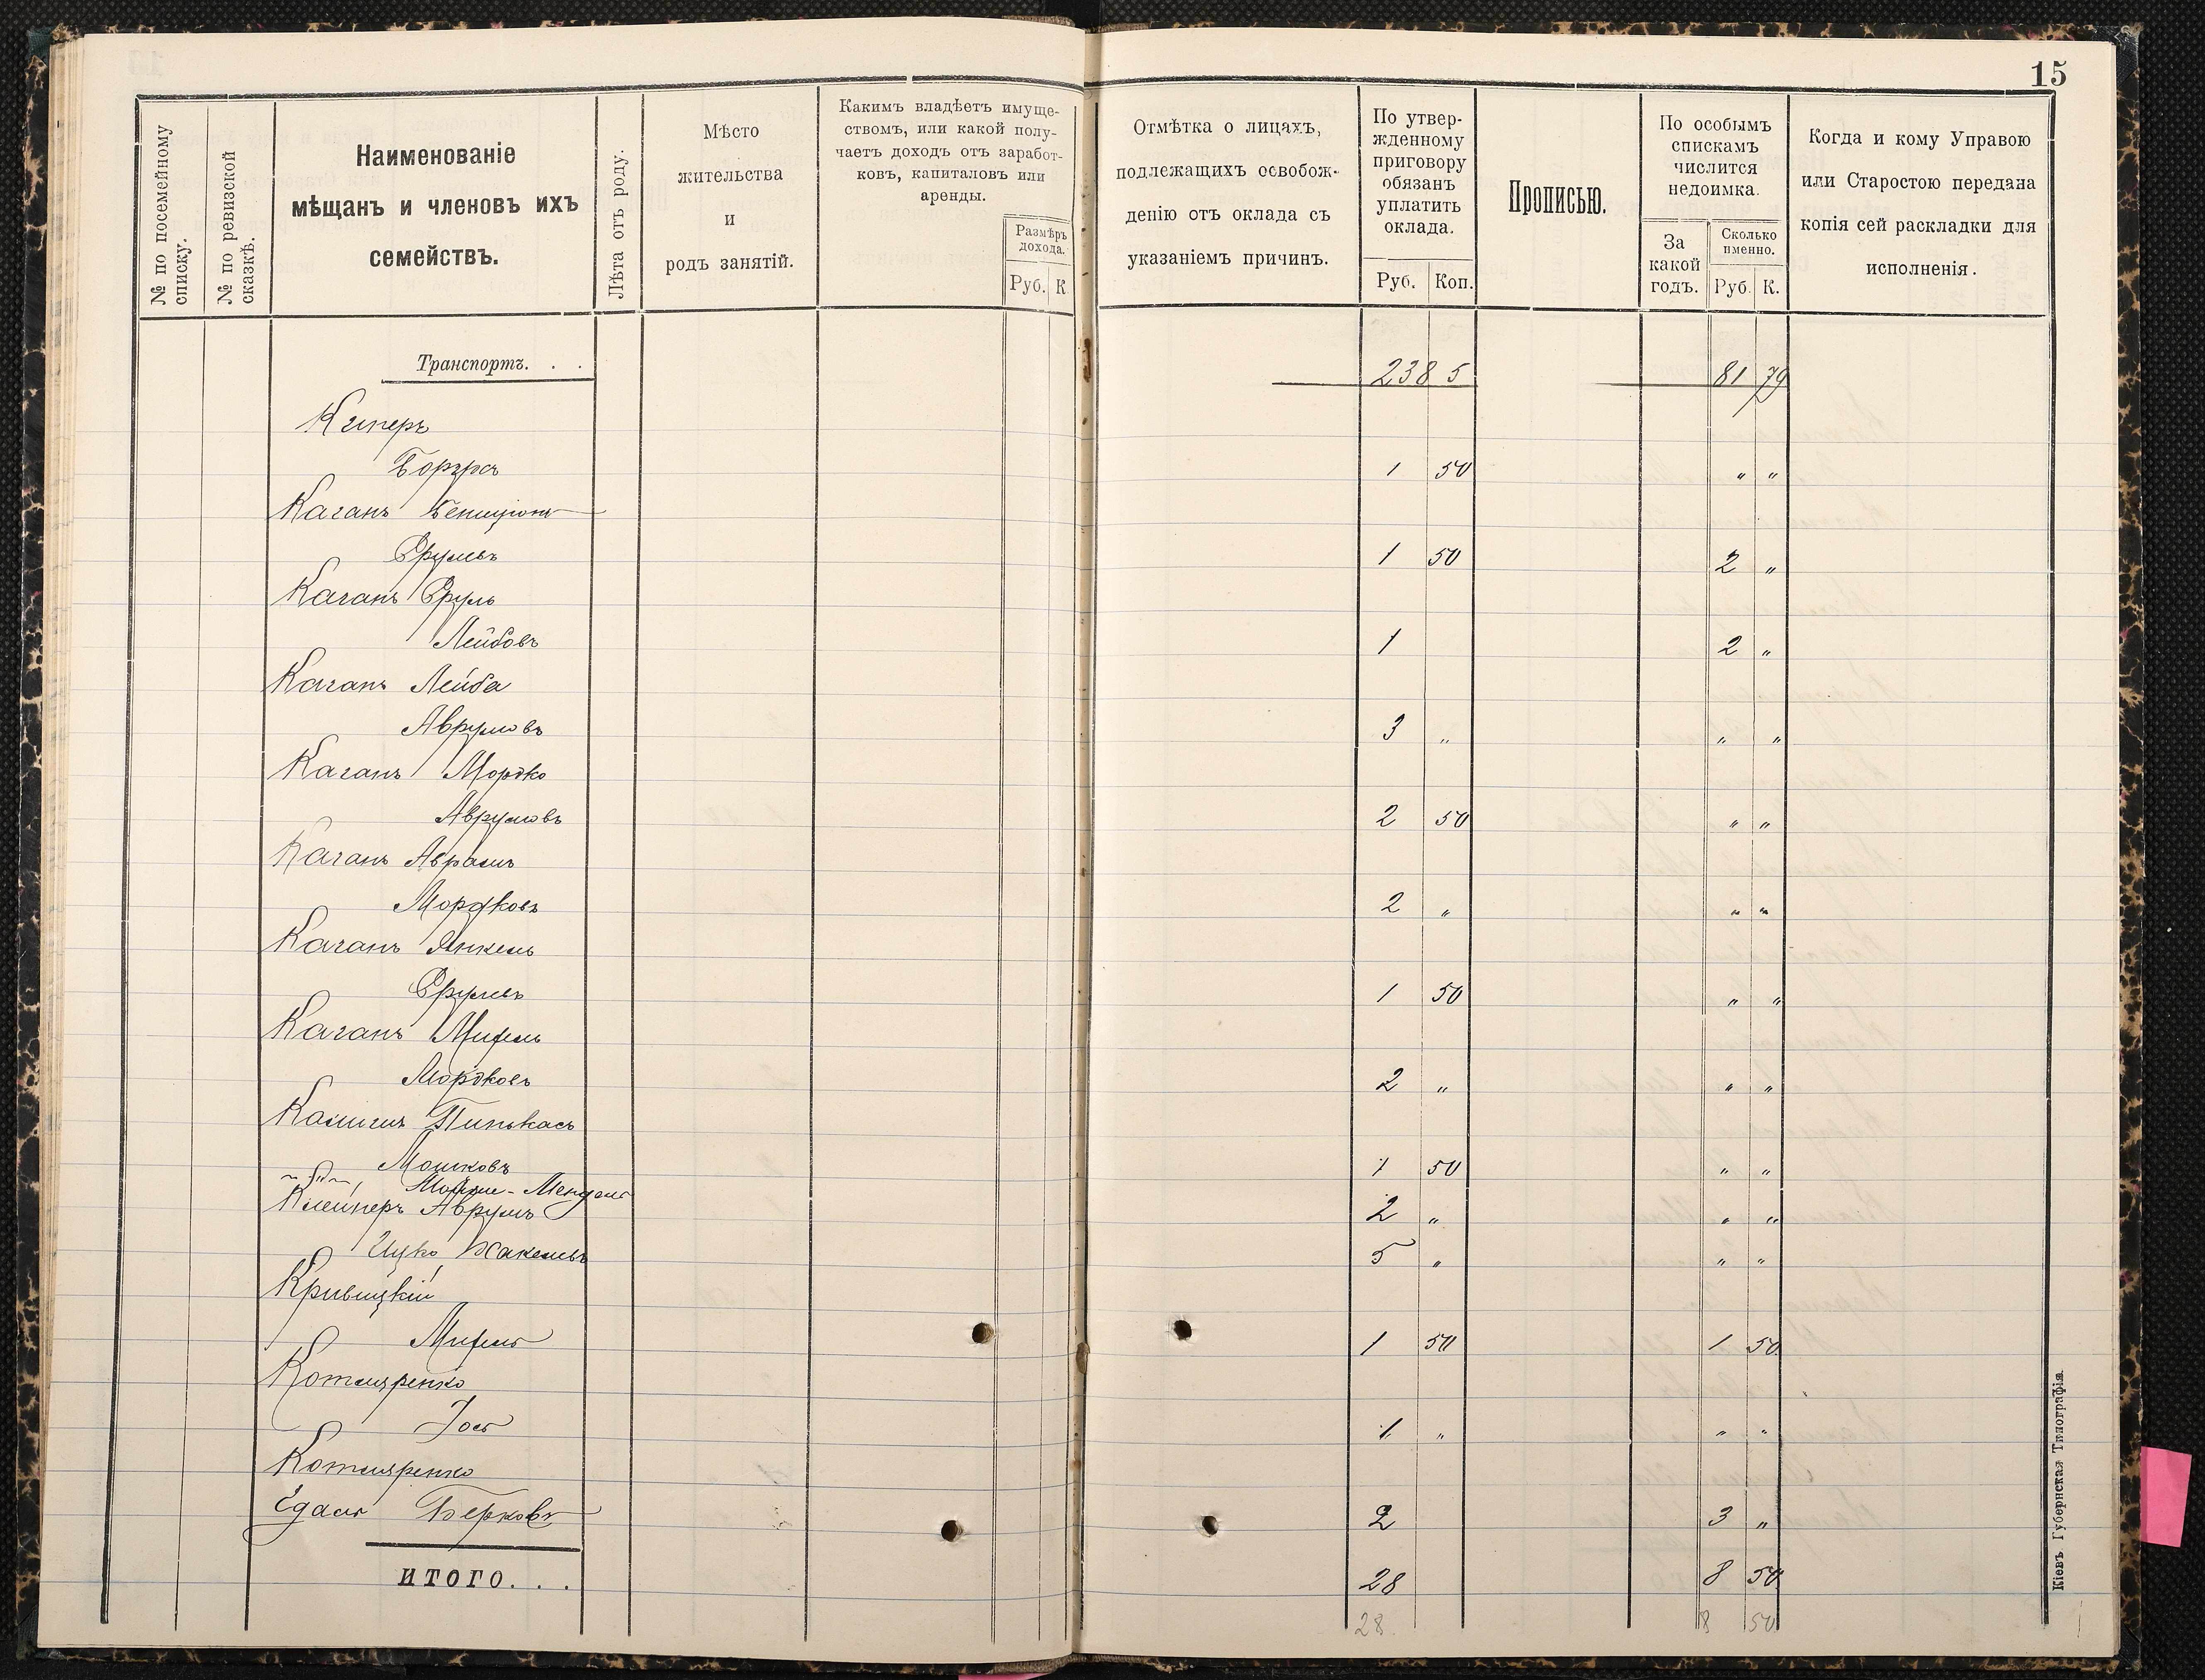 15
№ по посемейному списку.
№ по ревизской сказкѣ.
Наименованіе
мѣщанъ и членовъ ихъ
семействъ.
Лѣта отъ роду.
Мѣсто
жительства
и
родъ занятій.
Какимъ владѣетъ имуще-
ствомъ, или какой полу-
чаетъ доходъ отъ заработ-
ковъ, капиталовъ или
аренды.
Размѣръ
дохода.
Руб. К
Отмѣтка о лицахъ,
подлежащихъ освобож-
денію отъ оклада съ
указаніемъ причинъ.
По утвер-
жденному
приговору
обязанъ
уплатить
оклада.
Руб. Коп.
Прописью.
По особымъ
спискамъ
числится
недоимка.
За
какой
годъ.
Сколько
именно.
Руб. К.
Когда и кому Управою
или Старостою передана
копія сей раскладки для
исполненія.
Транспортъ. . . 238 5 81 79
1 50 " "
Каганъ Бенціонъ
Срулевъ 1 50 2 "
Каганъ Сруль
Лейбовъ 1 2 "
Каганъ Лейба
Аврумовъ 3 " " "
Каганъ Мордко
Аврумовъ 2 50 " "
Каганъ Аврамъ
Мордковъ 2 " " "
Каганъ Янкель
Срулевъ 1 50 " "
Каганъ Михель
Мордковъ 2 " " "
Пинькасъ
Мошковъ 1 50 " "
Мендель
Аврумъ 2 " " "
Ицко 5 " " "
Кривицкій
Михель 1 50 1 50
Котляренко
Іось 1 " " "
Котляренко
Берковъ 2 3 "
ИТОГО. . . 28 8 50
28. 8 50
Кіевъ Губернская Типографія.